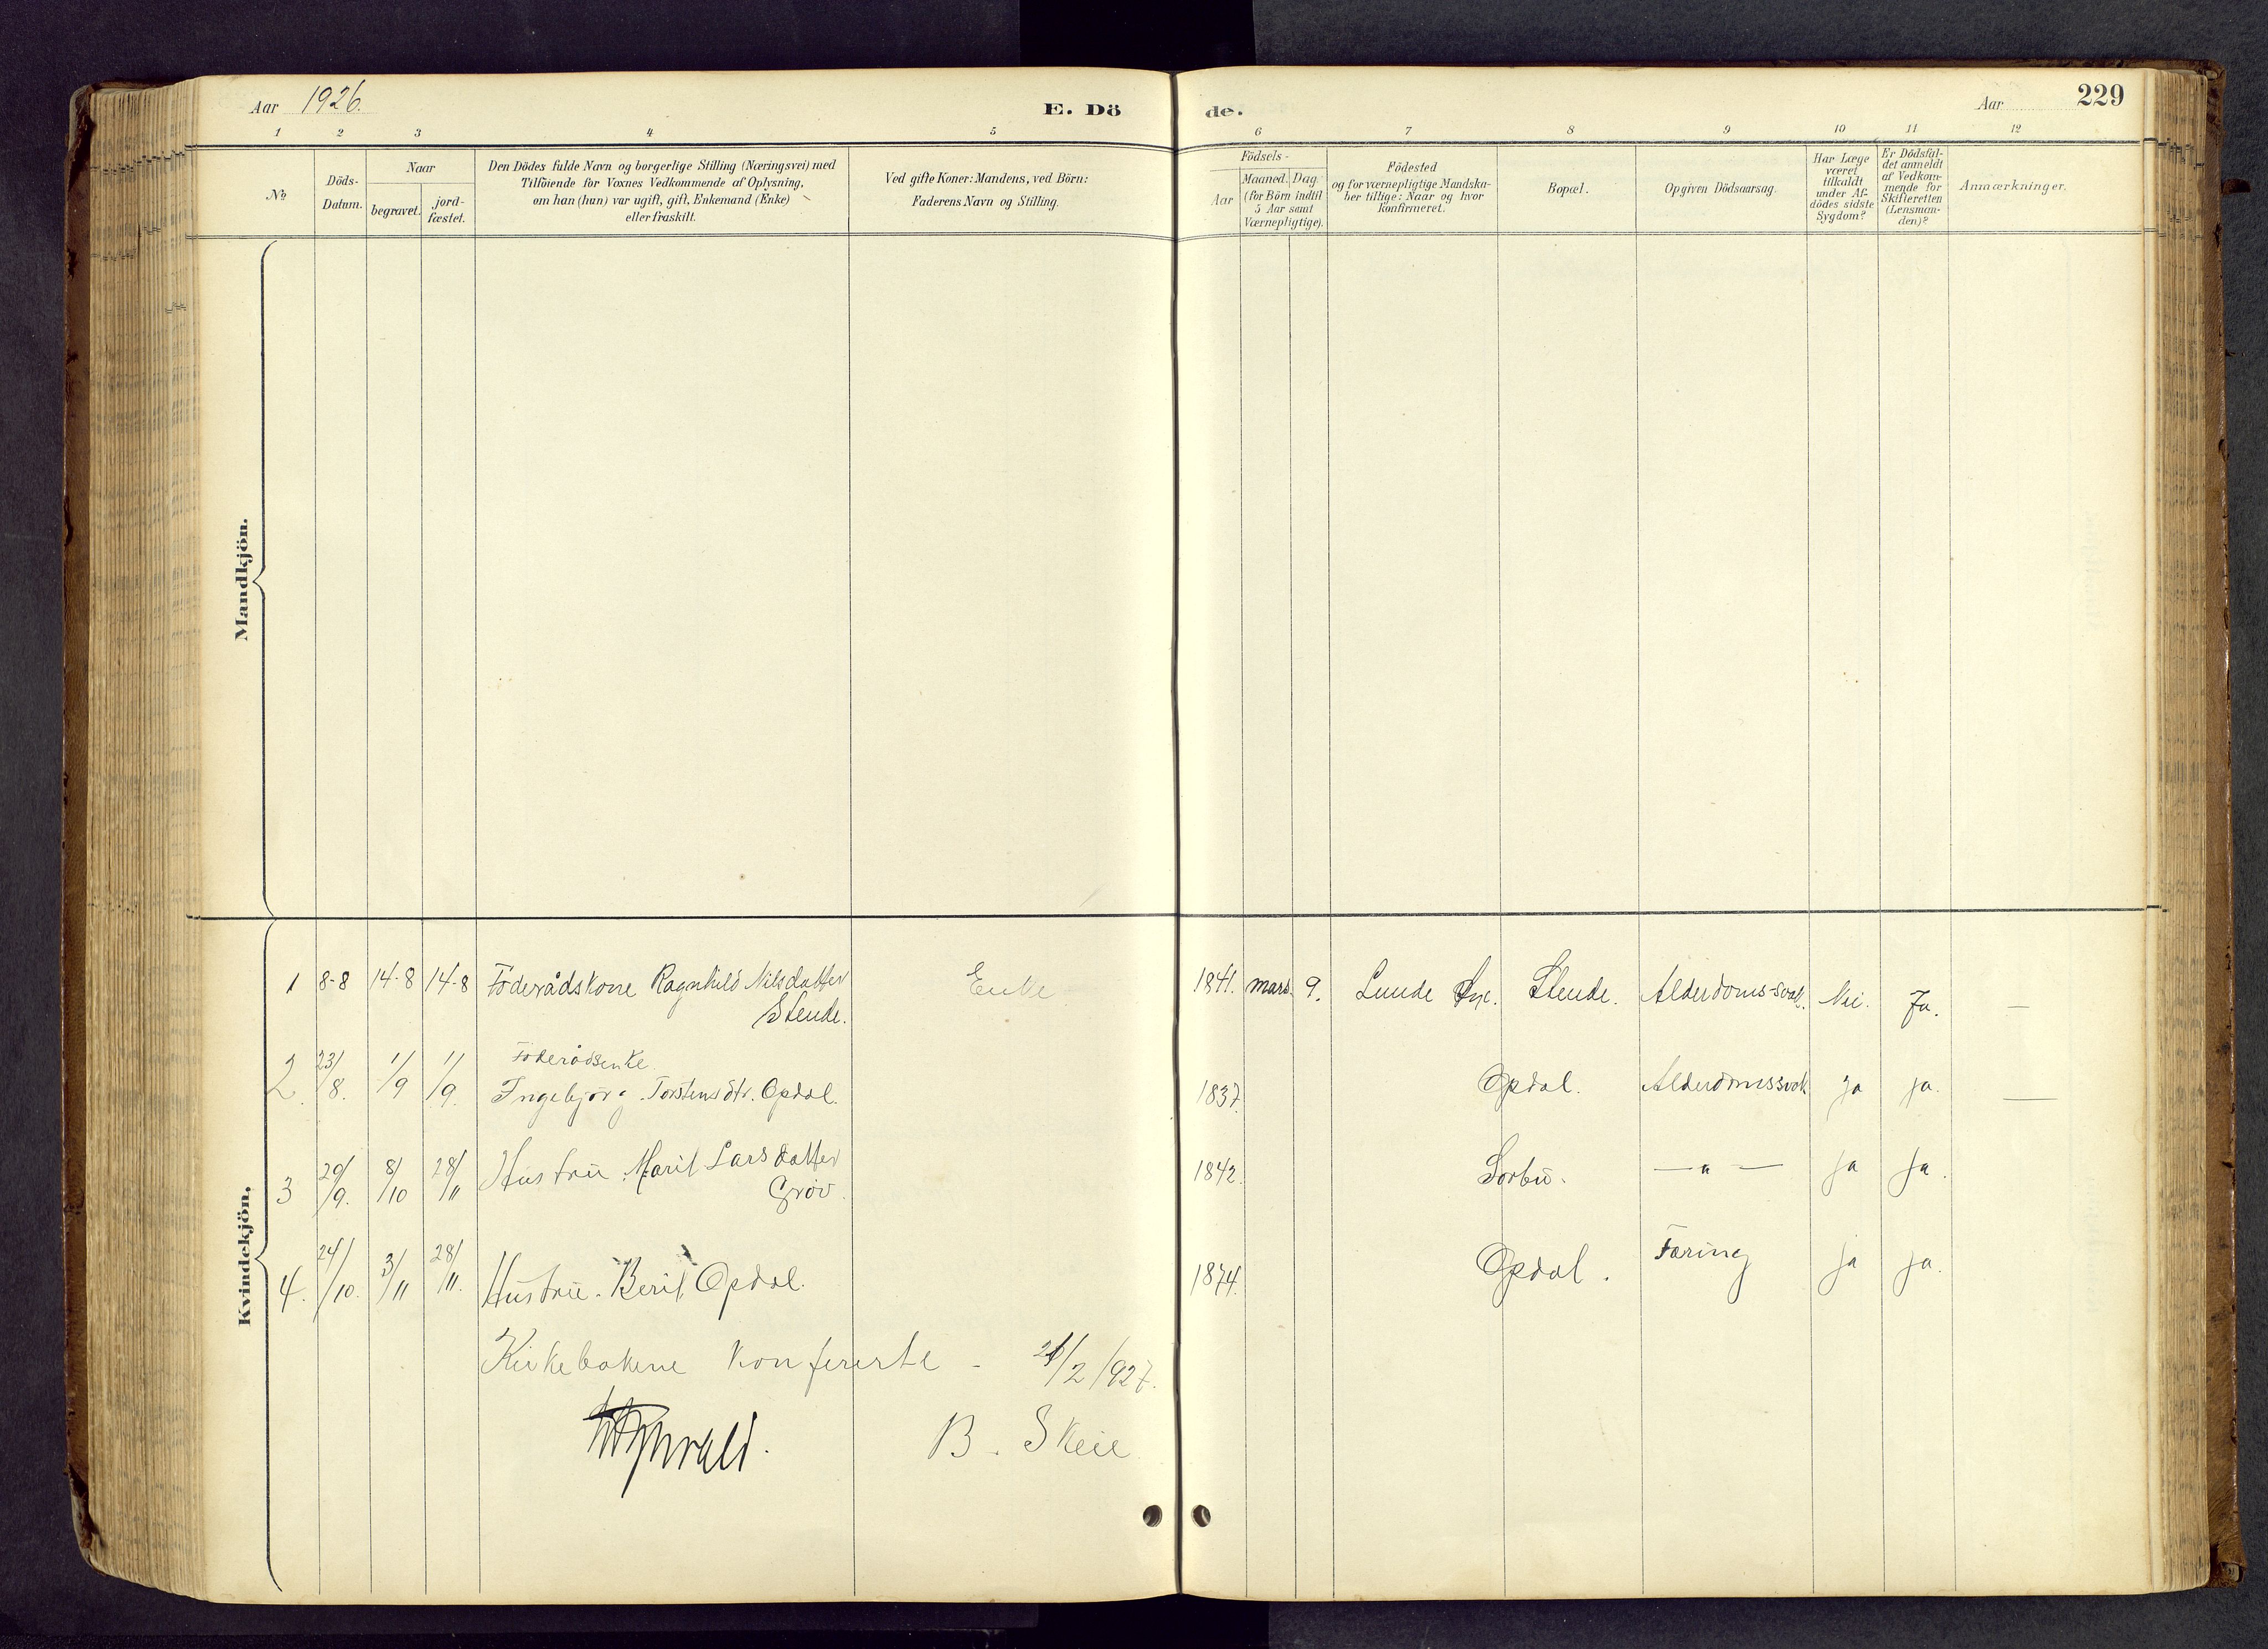 Aar 1926.
E. Dö
de.
Aar
229
1 2 3 4 5 6 7 8 9 10 11 12
No
Döds-
Datum.
Naar
begravet.
jord-
fæstet.
Den Dödes fulde Navn og borgerlige Stilling (Næringsvei) med
Tilföiende for Voxnes Vedkommende af Oplysning,
om han (hun) var ugift, gift, Enkemand (Enke)
eller fraskilt.
Ved gifte Koner: Mandens, ved Börn:
Faderens Navn og Stilling.
Födsels-
Aar
Maaned. Dag.
(for Börn indtil
5 Aar samt
Værnepligtige).
Födested
og for værnepligtige Mandska-
ber tillige: Naar og hvor
konfirmeret.
Bopæl.
Opgiven Dödsaarsag.
Har Læge
været
tilkaldt
under Af-
dödes sidste
Sygdom?
Er Dödsfal-
det anmeldt
af Vedkom-
mende for
Skifteretten
(Lensman-
den)?
Anmærkninger.
Mandkjön.
Kvindekjön.
1 8-8 14-8 14-8 Föderådskone Ragnhild Nilsdatter Enke 1841. mars. 9. Lunde Stende. Alderdoms-svak. Nei. Ja. —
Stende.
Föderådsenke
2. 23/8. 1/9 1/9. Ingebjörg Torstensdtr. Opdal. 1837. Opdal. Alderdomssvak ja ja. —
3 29/9. 8/10 28/11 Hustru Marit Larsdatter 1842. Sorbu. — " — ja ja.
Gröv.
4. 24/10. 3/11 28/11. Hustru Berit Opdal. 1874. Opdal. Tæring ja ja.
Kirkebokene konfererte - /2/927.
B. Skeie